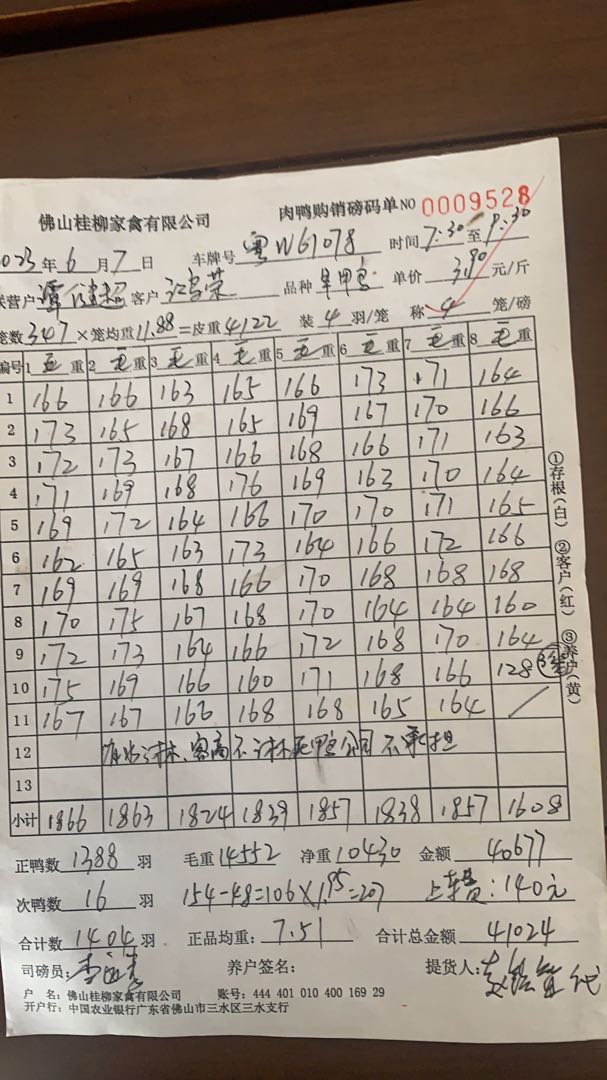 佛山桂柳家禽有限公司 肉鸭购销磅码单 NO 0009528
2023 年 6 月 7 日 车牌号 粤W61078 时间 7:30 至 9:30
联营户 客户 品种 单价 3.90 元/斤
笼数 347 × 笼均重 11.88 = 皮重 4122 装 4 羽/笼 称 4 笼/磅
编号 1 毛重 2 毛重 3 毛重 4 毛重 5 毛重 6 毛重 7 毛重 8 毛重
1 166 166 163 165 166 173 171 164
2 173 165 168 165 169 167 170 166
3 172 173 167 166 168 166 171 163
4 171 169 168 176 169 163 170 164
5 169 172 164 166 170 170 171 165
6 162 165 163 173 164 166 172 166
7 169 169 168 166 170 168 168 168
8 170 175 167 168 170 164 164 160
9 172 173 164 166 172 168 170 164
10 175 169 166 160 171 168 166 128
11 167 167 166 168 168 165 164 /
12 不 死 公司不承担
13
小计 1866 1863 1824 1839 1857 1838 1857 1608
正鸭数 1388 羽 毛重 14552 净重 10430 金额 40677
次鸭数 16 羽 154-48=106×1.95=207 上车费:140元
合计数 1404 羽 正品均重: 7.51 合计总金额 41024
司磅员: 养户签名: 提货人:
户 名: 佛山桂柳家禽有限公司 账号: 444 401 010 400 169 29
开户行: 中国农业银行广东省佛山市三水区三水支行
①存根(白) ②客户(红) ③养户(黄)